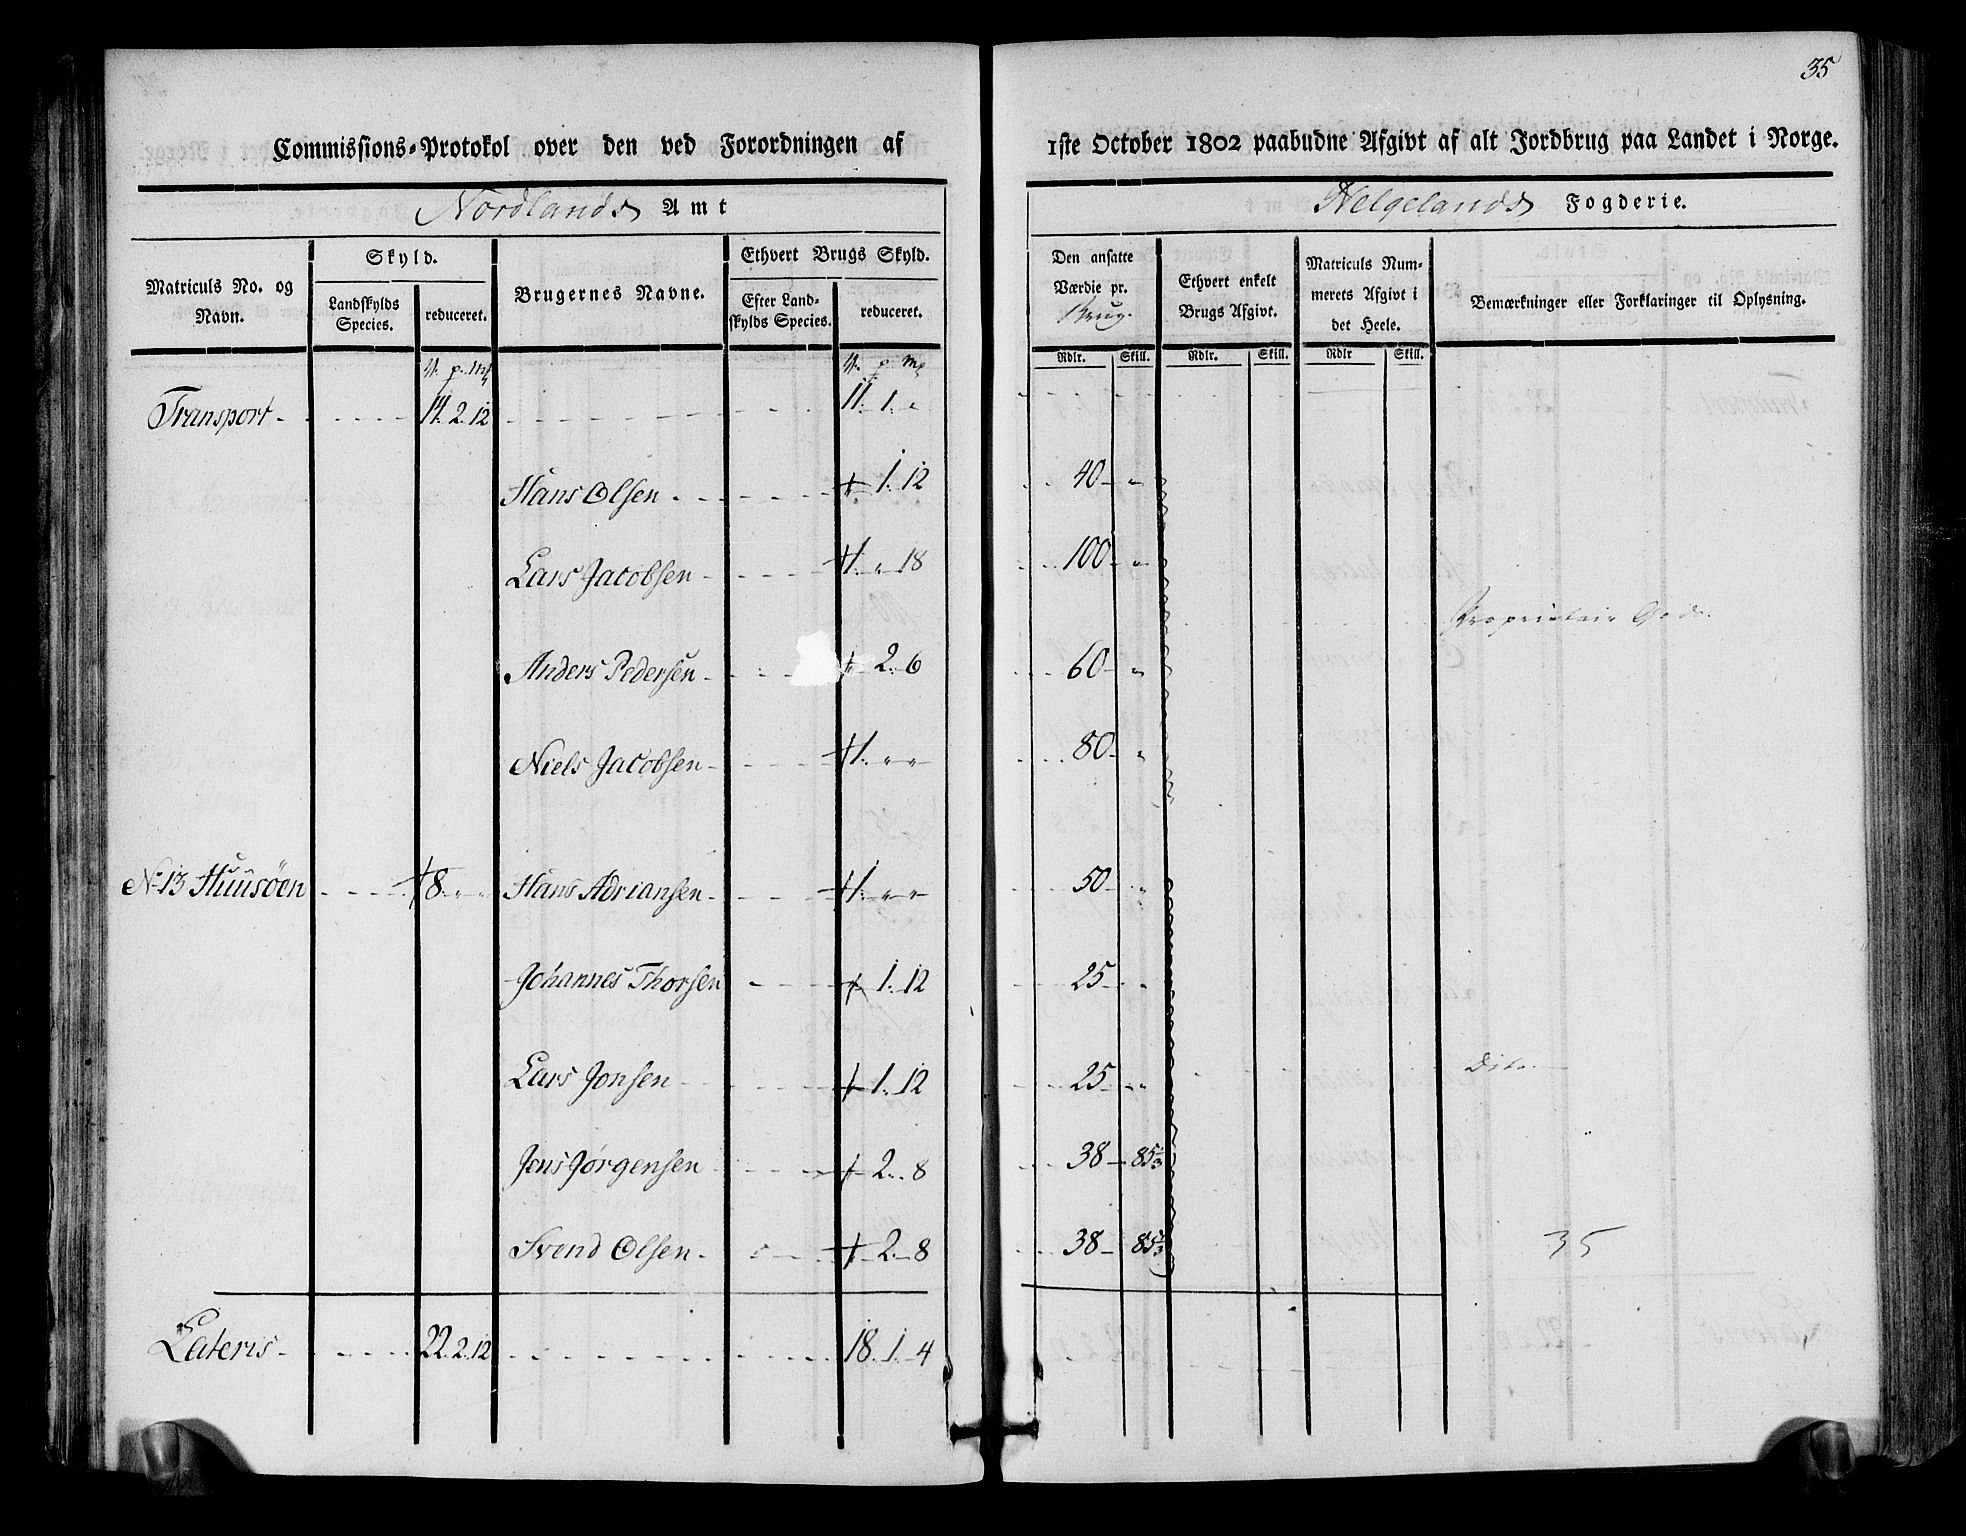 35
Commissions-Protokol over den ved Forordningen af 1ste October 1802 paabudne Afgivt af alt Jordbrug paa Landet i Norge.
Nordlands Amt Helgelands Fogderie.
Matriculs No. og Navn. Skyld. Landskylds Species. reduceret. Brugernes Navne. Ethvert Brugs Skyld. Efter Landskylds Species. reduceret. Den ansatte Værdie pr. Brug. Ethvert enkelt Brugs Afgivt. Matriculs Nummerets Afgivt i det Heele. Bemærkninger eller Forklaringer til Oplysning.
Rdlr. Skill. Rdlr. Skill. Rdlr Skill.
Transport 14. 2. 12 11. 1. "
Hans Olsen 1. 12 40 "
Lars Jacobsen 1. " 18 100 "
Proprietair Gods.
Anders Pedersen 2. 6 60 "
Niels Jacobsen 1. " " 80 "
No 13 Huusöen 8. " " Hans Adriansen 1. " " 50 "
Johannes Thorsen 1. 12 25 "
Lars Jonsen 1. 12 25 " Dito
Jens Jørgensen 2. 8 38 85 1/3
Svend Olsen 2. 8 38 85 1/3 35
Lateris 22. 2. 12 18. 1. 4